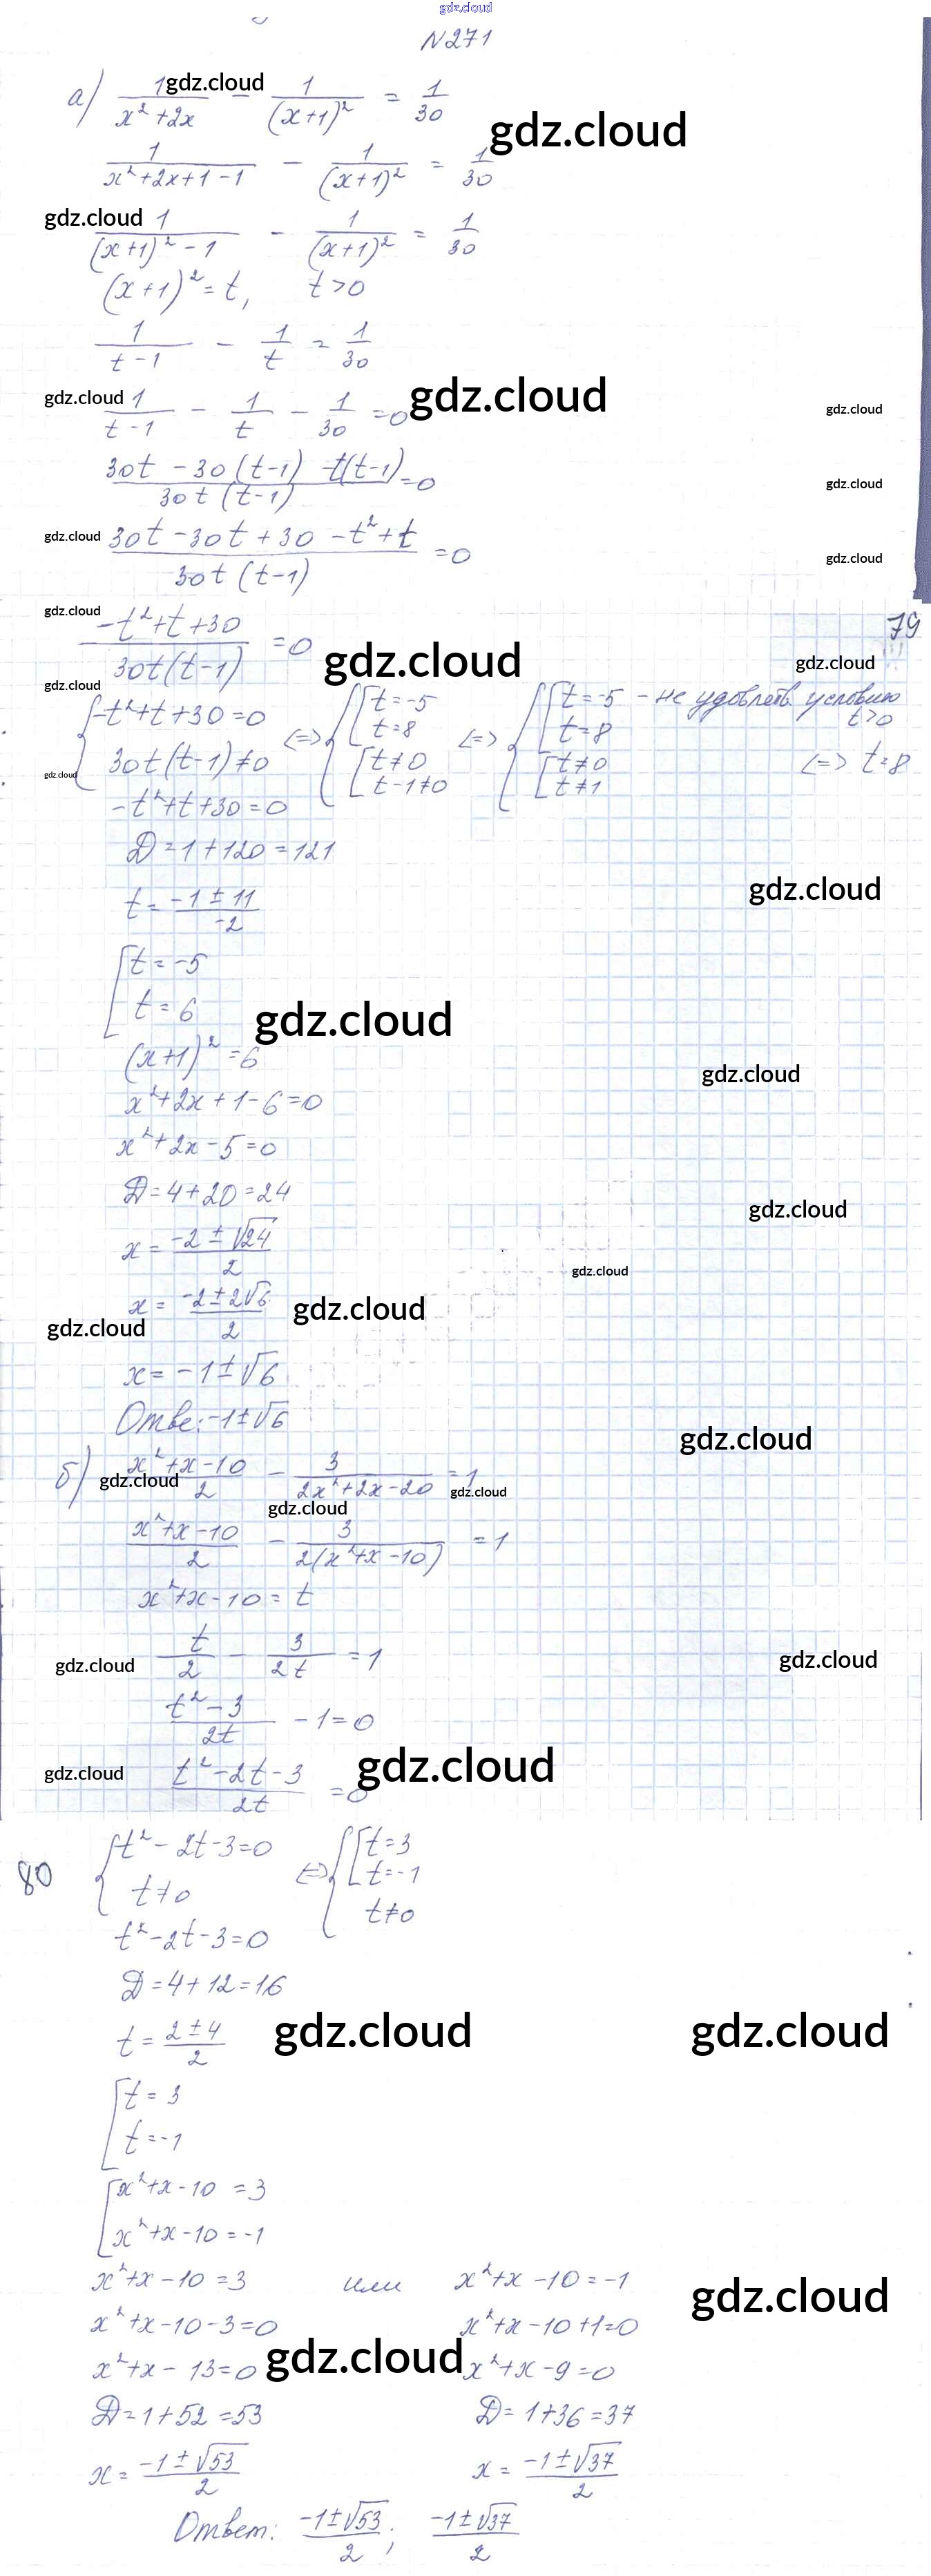 gdz.cloud
N271
а) 1/(x²+2x) − 1/(x+1)² = 1/30
gdz.cloud
gdz.cloud
1/(x²+2x+1−1) − 1/(x+1)² = 1/30
gdz.cloud
1/((x+1)²−1) − 1/(x+1)² = 1/30
(x+1)² = t, t>0
1/(t−1) − 1/t = 1/30
gdz.cloud
gdz.cloud
gdz.cloud
1/(t−1) − 1/t − 1/30 = 0
(30t − 30(t−1) − t(t−1))/(30t(t−1)) = 0
gdz.cloud
gdz.cloud
(30t − 30t + 30 − t² + t)/(30t(t−1)) = 0
gdz.cloud
gdz.cloud
79
(−t²+t+30)/(30t(t−1)) = 0
gdz.cloud
gdz.cloud
gdz.cloud
{ −t²+t+30=0 <=> { [ t=−5 <=> { [ t=−5 − не удовлетв. условию t>0
t=8 t=8
30t(t−1)≠0 [ t≠0 [ t≠0 <=> t=8
t−1≠0 t≠1
gdz.cloud
−t²+t+30=0
D=1+120=121
gdz.cloud
t = (−1±11)/−2
[ t=−5
t=6
gdz.cloud
(x+1)²=6
gdz.cloud
x²+2x+1−6=0
x²+2x−5=0
D=4+20=24
gdz.cloud
x = (−2±√24)/2
gdz.cloud
x = (−2±2√6)/2
gdz.cloud
gdz.cloud
x = −1±√6
Отве: −1±√6
gdz.cloud
б) (x²+x−10)/2 − 3/(2x²+2x−20) = 1
gdz.cloud
gdz.cloud
gdz.cloud
(x²+x−10)/2 − 3/(2(x²+x−10)) = 1
x²+x−10 = t
t/2 − 3/(2t) = 1
gdz.cloud
gdz.cloud
(t²−3)/(2t) − 1 = 0
gdz.cloud
gdz.cloud
(t²−2t−3)/(2t) = 0
80
{ t²−2t−3=0 <=> { [ t=3
t=−1
t≠0 t≠0
t²−2t−3=0
D=4+12=16
t = (2±4)/2
gdz.cloud
gdz.cloud
[ t=3
t=−1
[ x²+x−10=3
x²+x−10=−1
x²+x−10=3 или x²+x−10=−1
gdz.cloud
x²+x−10−3=0 x²+x−10+1=0
gdz.cloud
x²+x−13=0 x²+x−9=0
D=1+52=53 D=1+36=37
x = (−1±√53)/2 x = (−1±√37)/2
Ответ: (−1±√53)/2; (−1±√37)/2